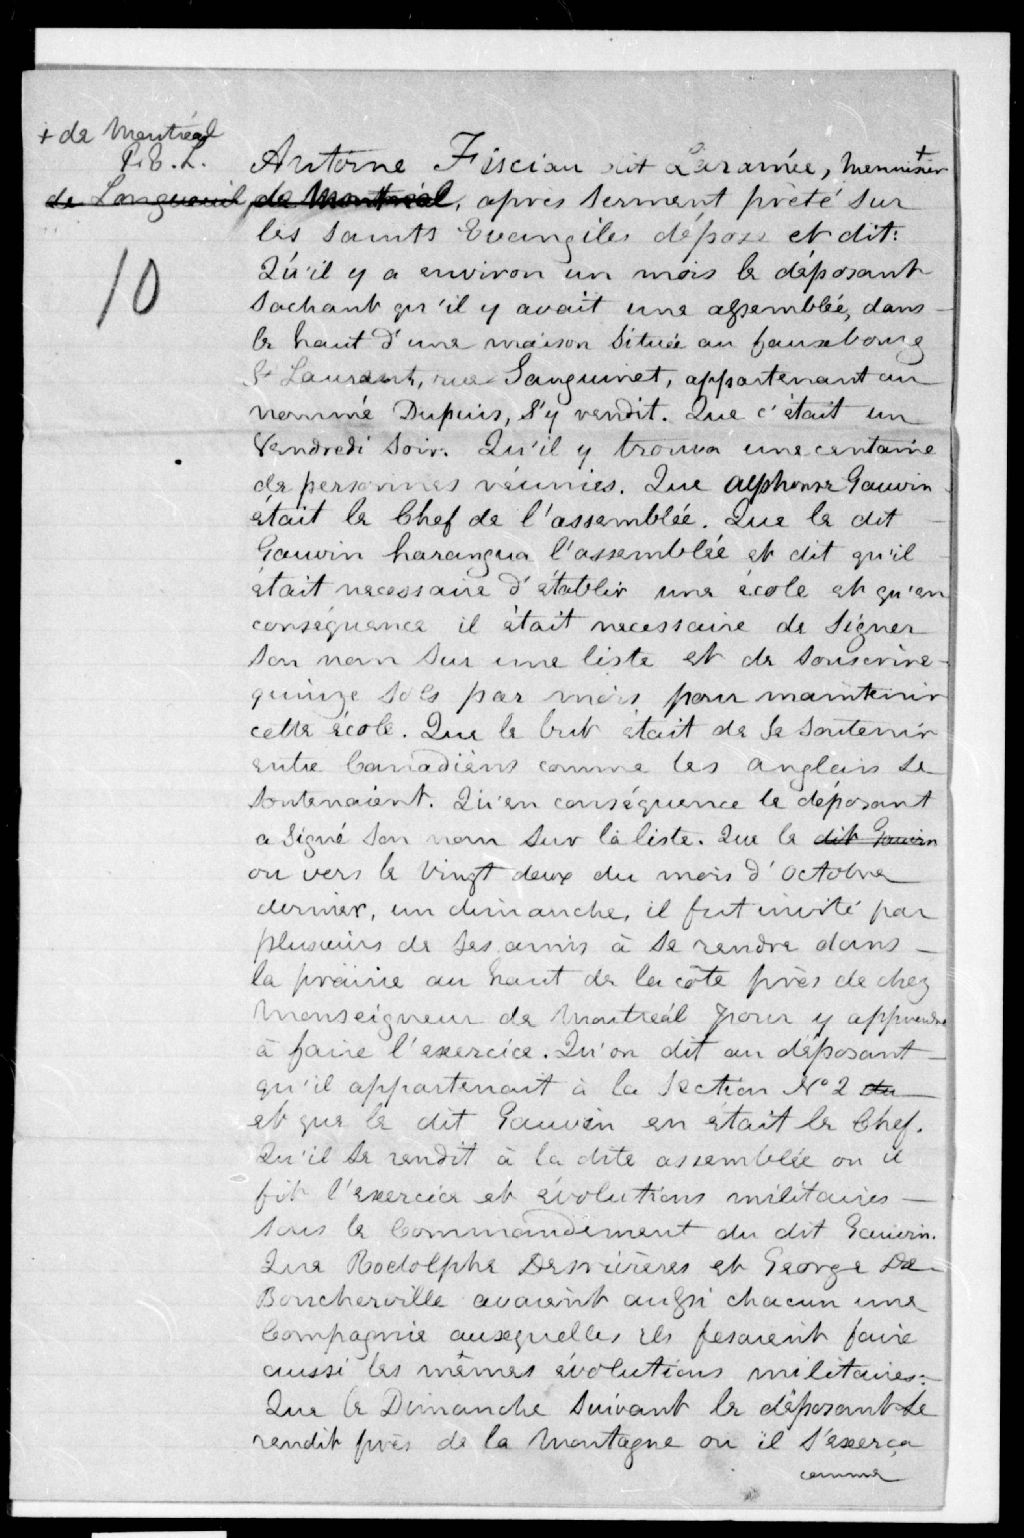 + de Montréal
P. E. L.
de Longueuil
10
Antoine Fiscian dit Laramée, Menuisier +
de Montréal, apres serment prèté sur
les Saints Evangiles dépose et dit:
Qu'il y a environ un mois le déposant
sachant qu'il y avait une assemblée, dans
le haut d'une maison située au fauxbourg
St Laurent, rue Sanguinet, appartenant au
nommé Dupuis, s'y rendit. Que c'était un
Vendredi soir. Qu'il y trouva une centaine
de personnes réunies. Que Alphonse Gauvin
était le Chef de l'assemblée. Que le dit
Gauvin harangua l'assemblée et dit qu'il
était necessaire d'établir une école et qu'en
conséquence il était necessaire de signer
son nom sur une liste et de souscrire
quinze sols par mois pour maintenir
cette école. Que le but était de se soutenir
entre Canadiens comme les anglais se
soutenaient. Qu'en conséquence le déposant
a signé son nom sur la liste. Que le dit Gauvin
ou vers le vingt deux du mois d'octobre
dernier, un dimanche, il fut invité par
plusieurs de ses amis à se rendre dans
la prairie au haut de la côte près de chez
Monseigneur de Montréal pour y apprendre
à faire l'exercice. Qu'on dit au déposant
qu'il appartenait à la Section No 2 du
et que le dit Gauvin en était le Chef.
Qu'il se rendit à la dite assemblée ou il
fit l'exercice et évolutions militaires
sous le Commandement du dit Gauvin.
Que Rodolphe Desrivières et George De
Boucherville avaient aussi chacun une
Compagnie auxquelles ils fesaient faire
aussi les mêmes évolutions militaires.
Que le Dimanche suivant le déposant se
rendit près de la Montagne ou il s'exerça
comme